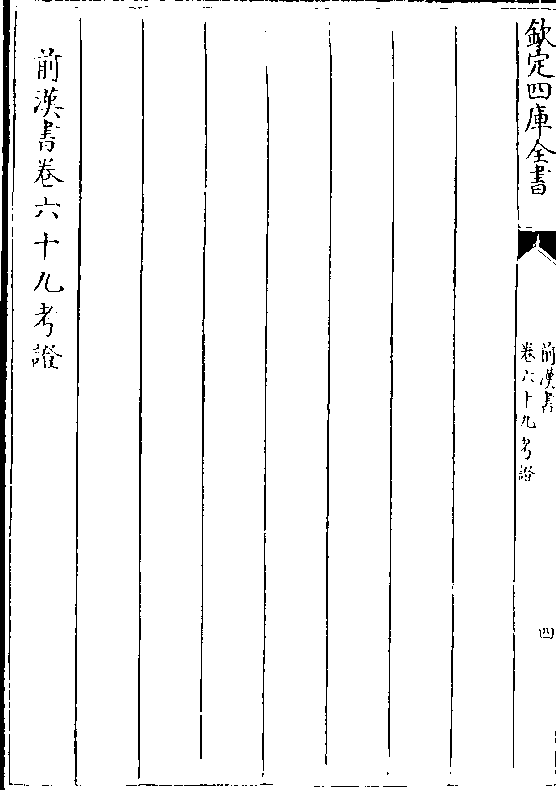 欽定四庫全書
前漢書
卷六十九考證
四
前漢書卷六十九考證